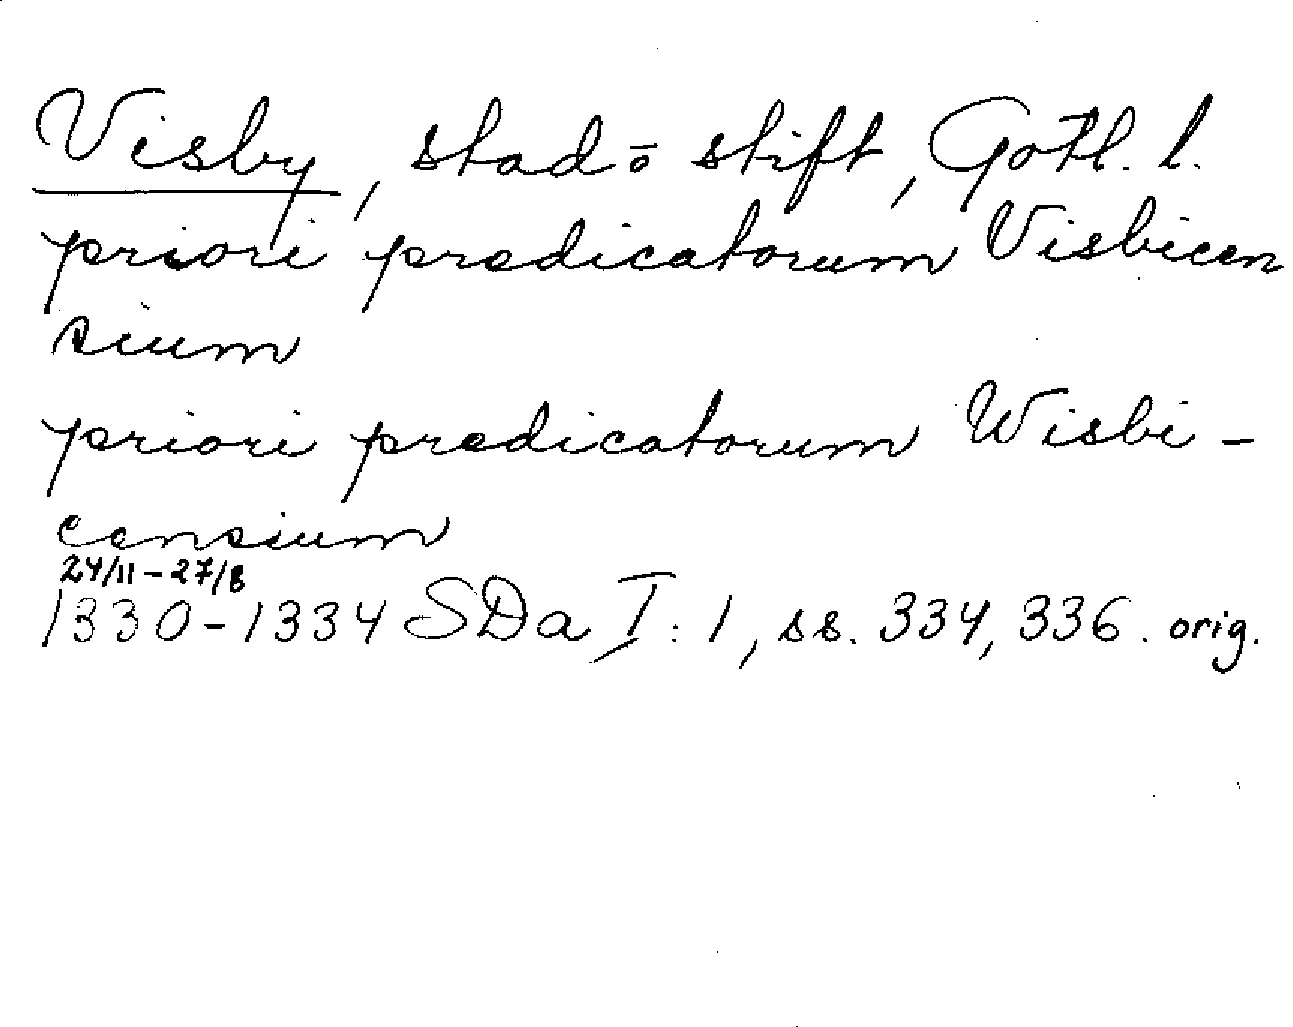 Visby, stad ō stift, Gotl. l.
priori predicatorum Visbicen
sium
priori predicatorum Wisbi-
censium
24/11-27/8
1330-1334 SDa I:1, ss. 334, 336. orig.